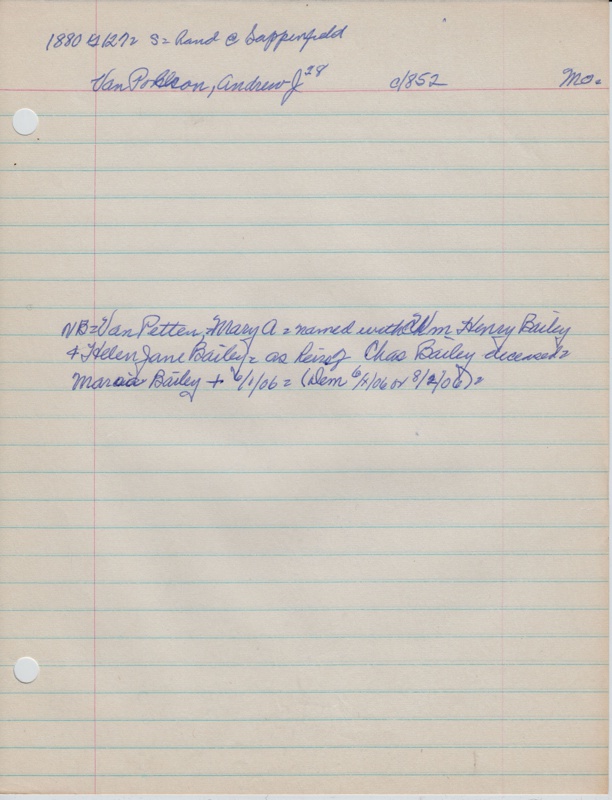 1880 127= S= hand @ Sappenfield
Van Pohlson, Andrew J 28 c/852 Mo.
NB=Van Petten, Mary A = named with Wm Henry Bailey
& Helen Jane Bailey= as heirs of Chas Bailey deceased=
Maria Bailey + 6/1/06 = (Dem 6/1/06 or 8/2/06)=